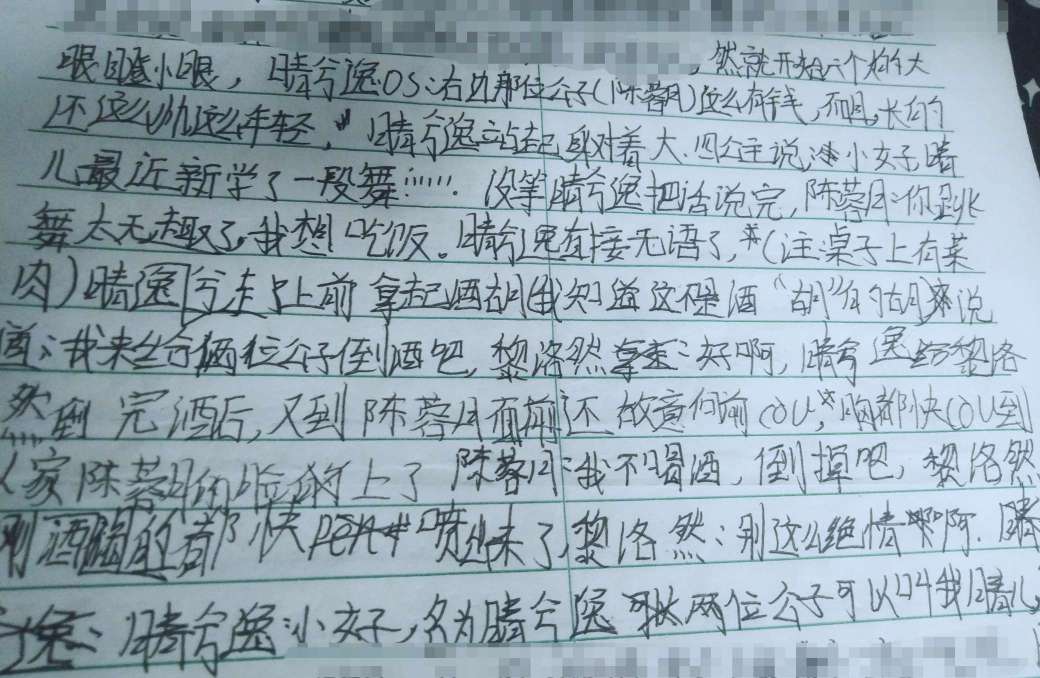 眼瞪小眼，晴兮逸OS：右边那位公子（陈蓉月）这么有钱，而且长的
还这么帅这么年轻，晴兮逸站起身对着大、四公主说：小女子晴
儿最近新学了一段舞……没等晴兮逸把话说完，陈蓉月：你跳
舞太无趣了，我想吃饭。晴兮逸直接无语了，*（注：桌子上有菜
肉）晴兮逸走上前拿起酒胡（我知道这不是酒“胡”的胡）来说
道：我来给俩位公子倒酒吧，黎洛然：好啊，晴兮逸给黎洛
然到完酒后，又到陈蓉月面前还故意向前COU，胸都快COU到
人家陈蓉月的脸上了 陈蓉月：我不喝酒，倒掉吧，黎洛然
刚酒都快PEN喷出来了，黎洛然：别这么绝情啊，晴
兮逸：晴兮逸：小女子，名为晴兮逸 两位公子可以叫我晴儿